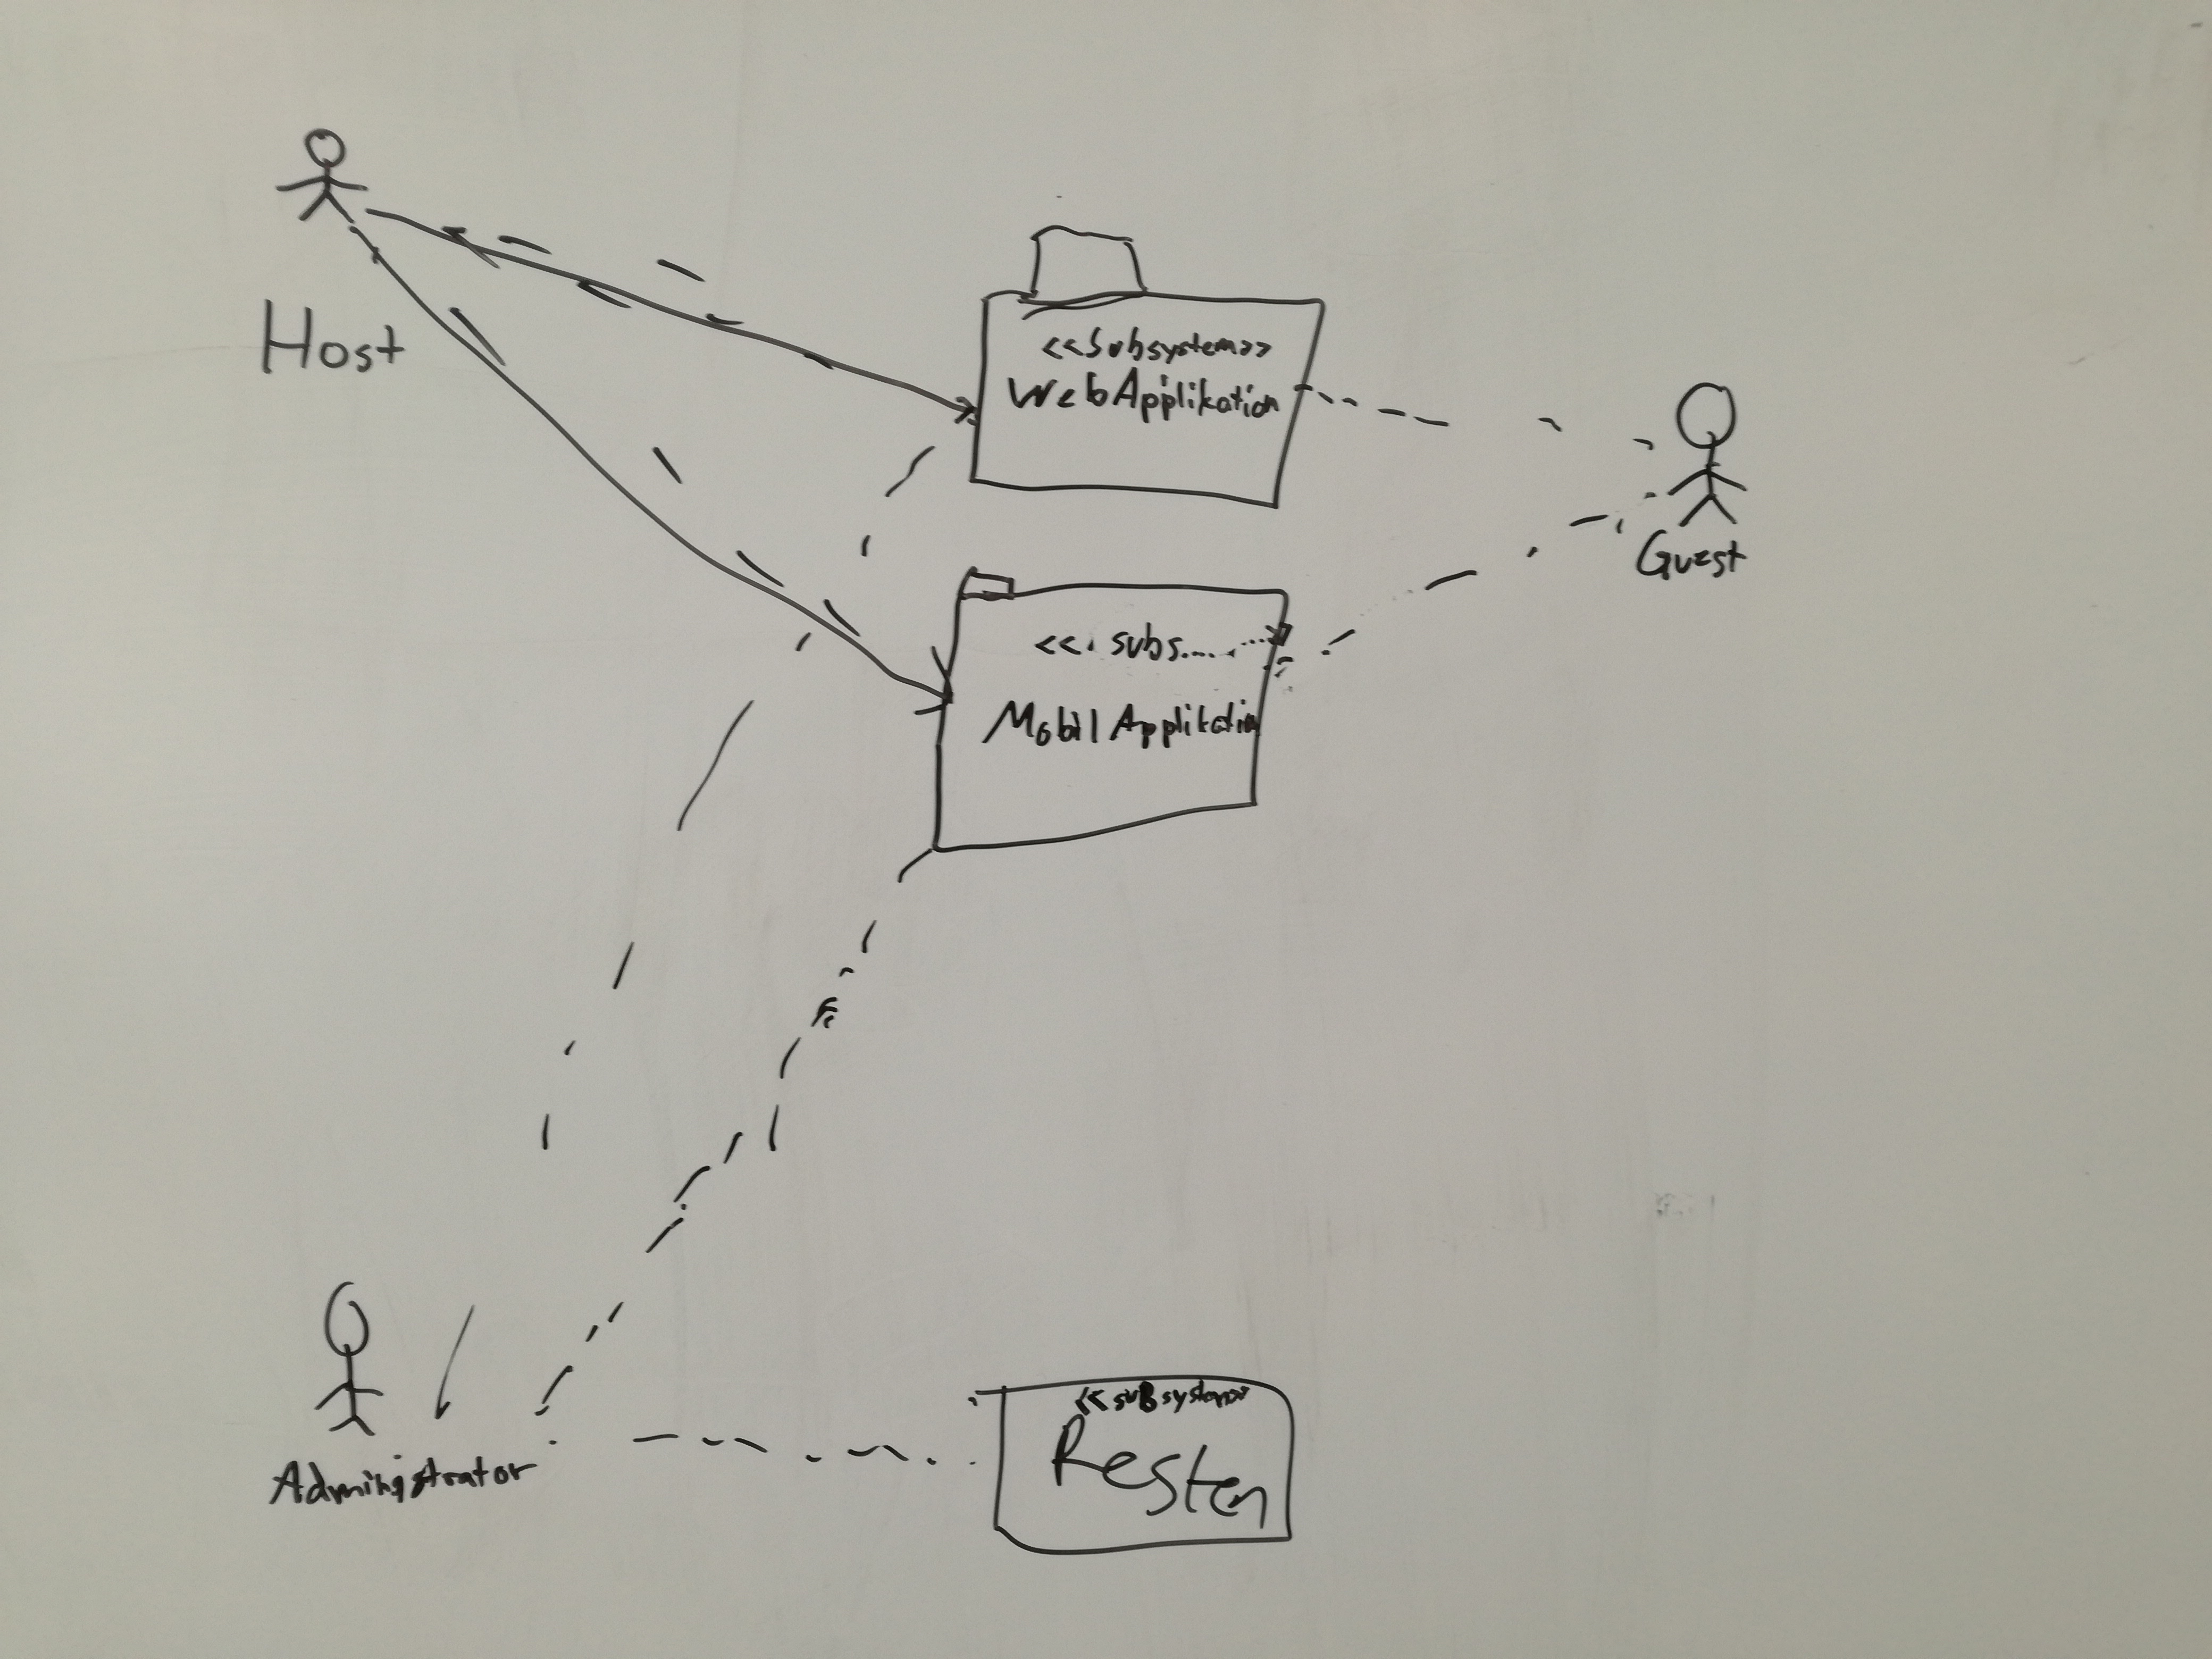 Host
<<Subsystem>>
WebApplikation
Guest
<<. subs....
Mobil Applikation
Administrator
<<subsystem>>
Resten